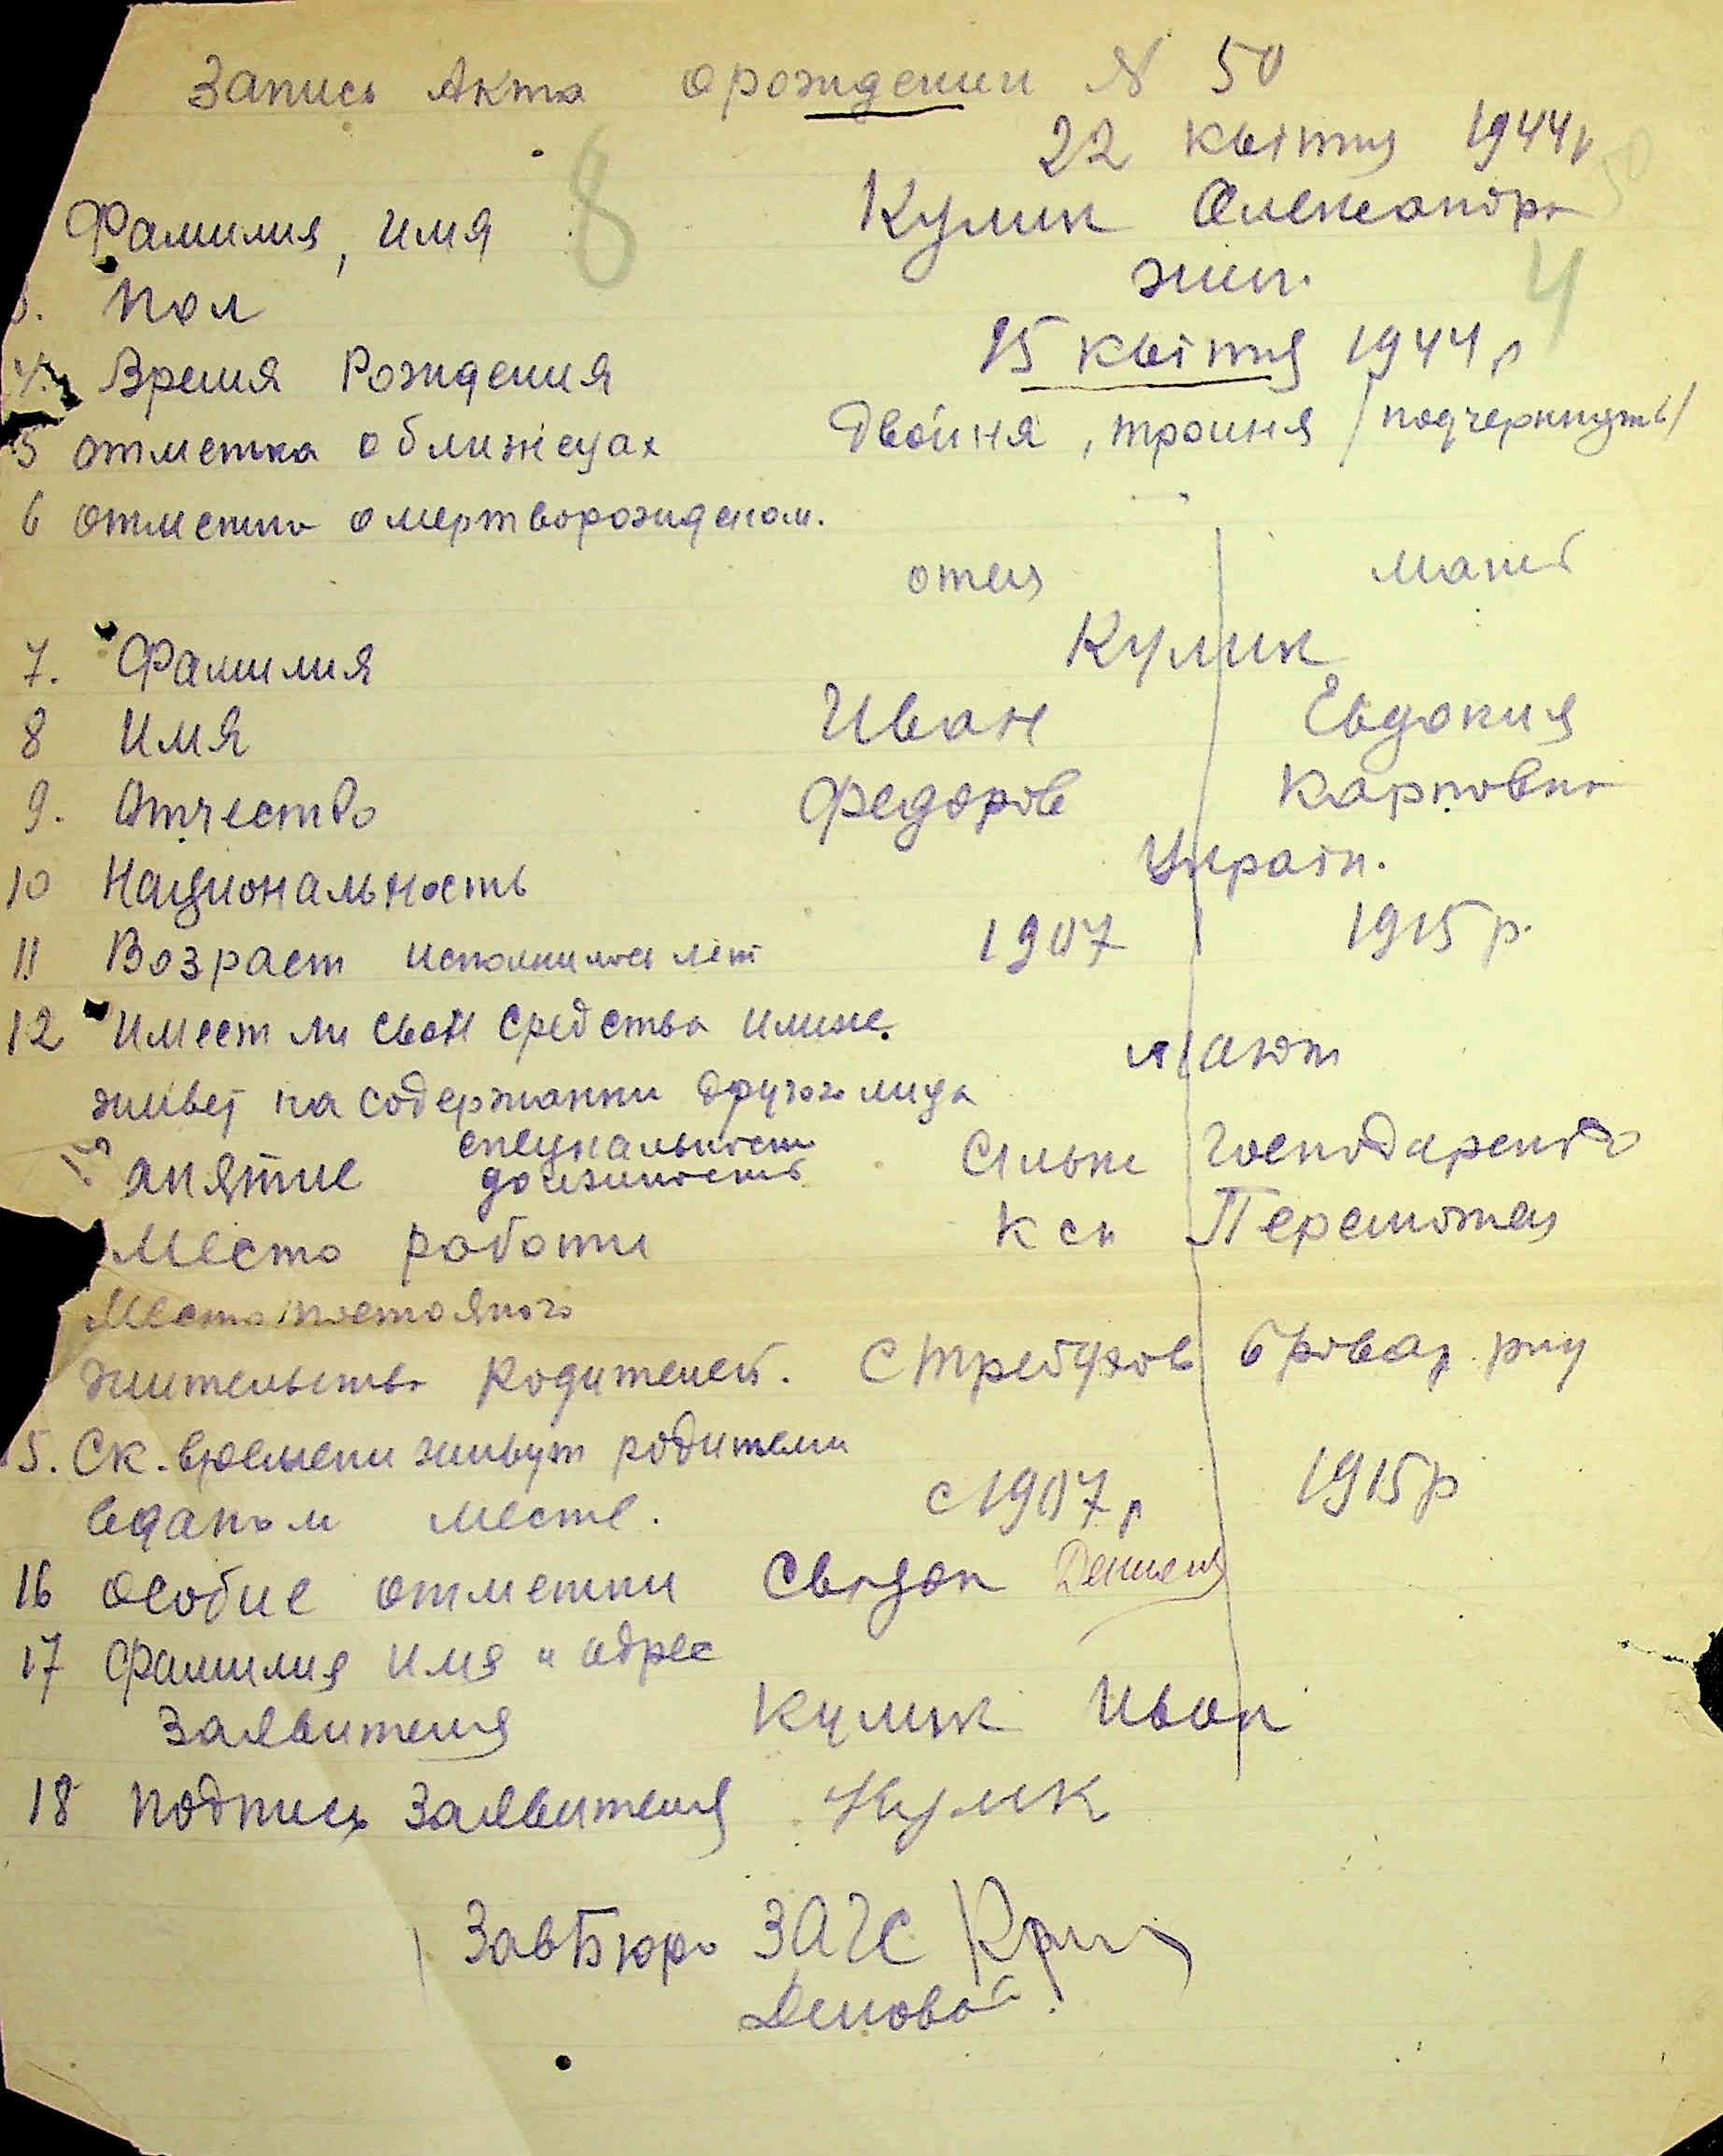 Запись Акта о рождении N 50
22 квітня 1944р
Фамилия, имя Кулик Олександра
3. Пол жін.
4. Время Рождения 15 квітня 1944р
5 отметка о близнецах Двойня, тройня /подчеркнуть/
6 отметка о мертворожденом.
отец мать
7. Фамилия Кулик
8 Имя Иван Евдокия
9. Отчество Федоров Карповна
10 Национальность Україн.
11 Возраст исполнилось лет 1907 1915 р.
12 Имеет ли свои средства или не мают
живет на содержании другого лица
анятие специальность должность Сільске Господарство
Место работи к сп Переможец
Место постояного
жительства Родителей. с Требухов Бровар. р-ну
5. Ск. времени живут родители
в даном месте. с 1907р 1915р
16 особие отметки Свидок
17 Фамилия имя и адрес
Заявителя Кулик Иван
18 подпись Заявителя Кулик
Зав Бюро ЗАГС
8
4
50